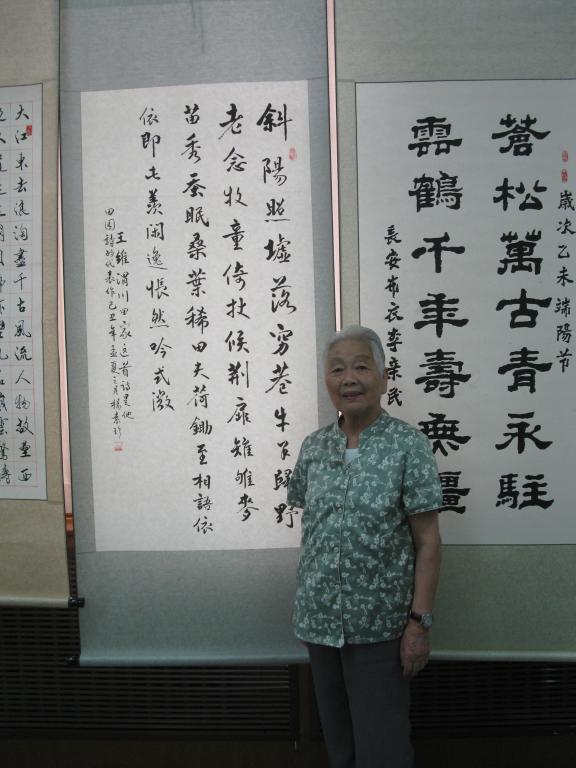 歲次乙未端陽節
蒼松萬古青永駐
雲鶴千年壽無疆
長安布衣李亲民
斜陽照墟落窮巷牛羊歸野
老念牧童倚杖候荆扉雉雊麥
苗秀蚕眠桑葉稀田夫荷鋤至相語依
依即此羨閑逸悵然吟式微
王維渭川田家這首詩是他
田園詩的代表作己丑年孟夏之月楊素珍
大江東去浪淘盡千古風流人物故壘西